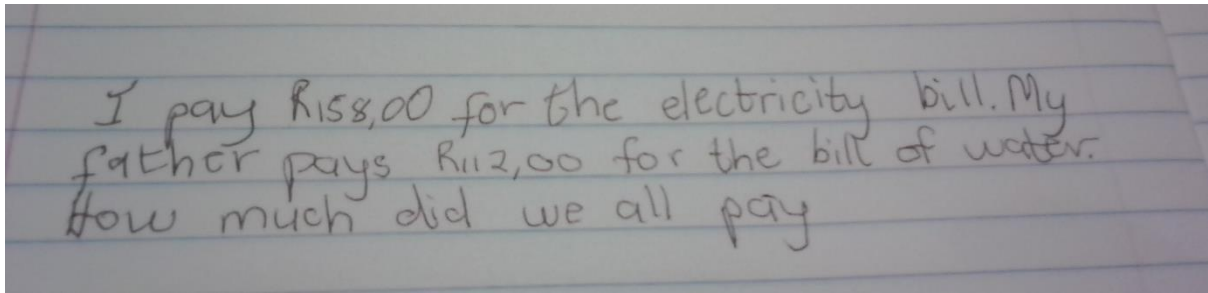 I pay R158,00 for the electricity bill. My
father pays R112,00 for the bill of water.
How much did we all pay